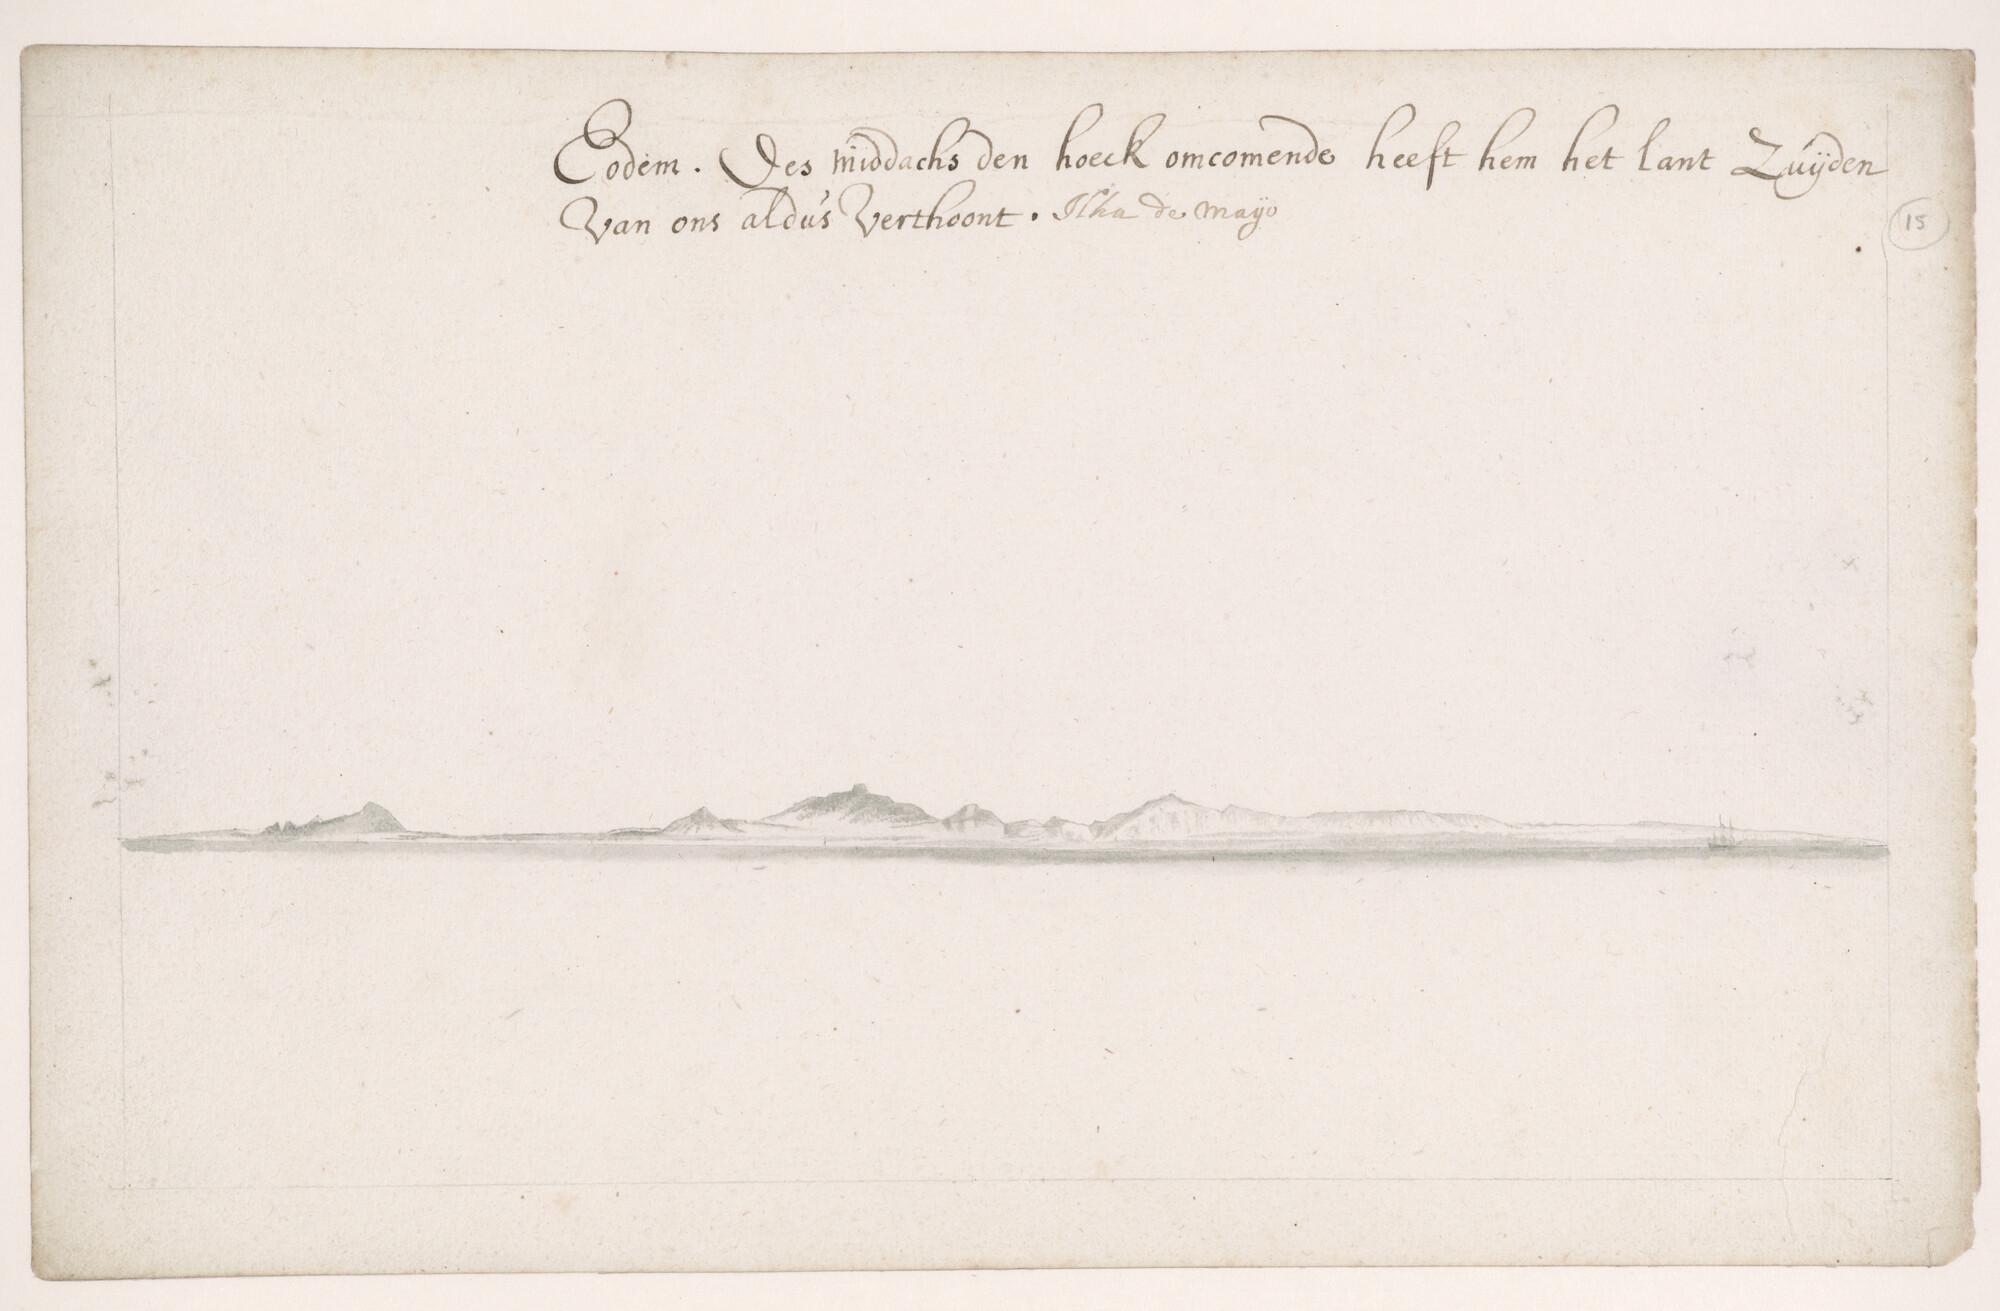 Eodem. Des middachs den hoeck omcomende heeft hem het lant Zuÿden
van ons aldus verthoont. Ilha de mayo
15